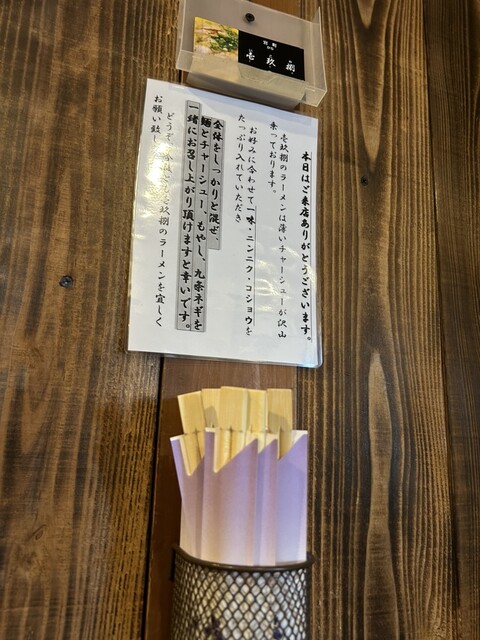 壱玖捌
本日はご来店ありがとうございます。
壱玖捌のラーメンは薄いチャーシューが沢山
乗っております。
お好みに合わせて一味・ニンニク・コショウを
たっぷり入れていただき
全体をしっかりと混ぜ、
麺とチャーシュー、もやし、九条ネギを
一緒にお召し上がり頂けますと幸いです。
壱玖捌のラーメンを宜しく
お願い致し